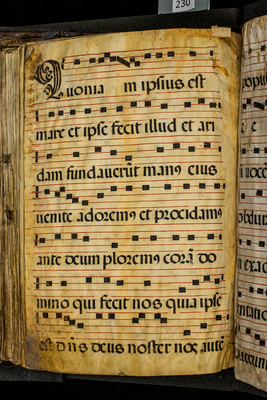 230
Quonia m ipsius est
mare et ipse fecit illud et ari
dam fundaverūt manꝰ eius
uenite adoremꝰ et procidamꝰ
ante deum ploremꝰ corā do
mino qui fecit nos quia ipse
est dn̄s deus noster nos autē
popu